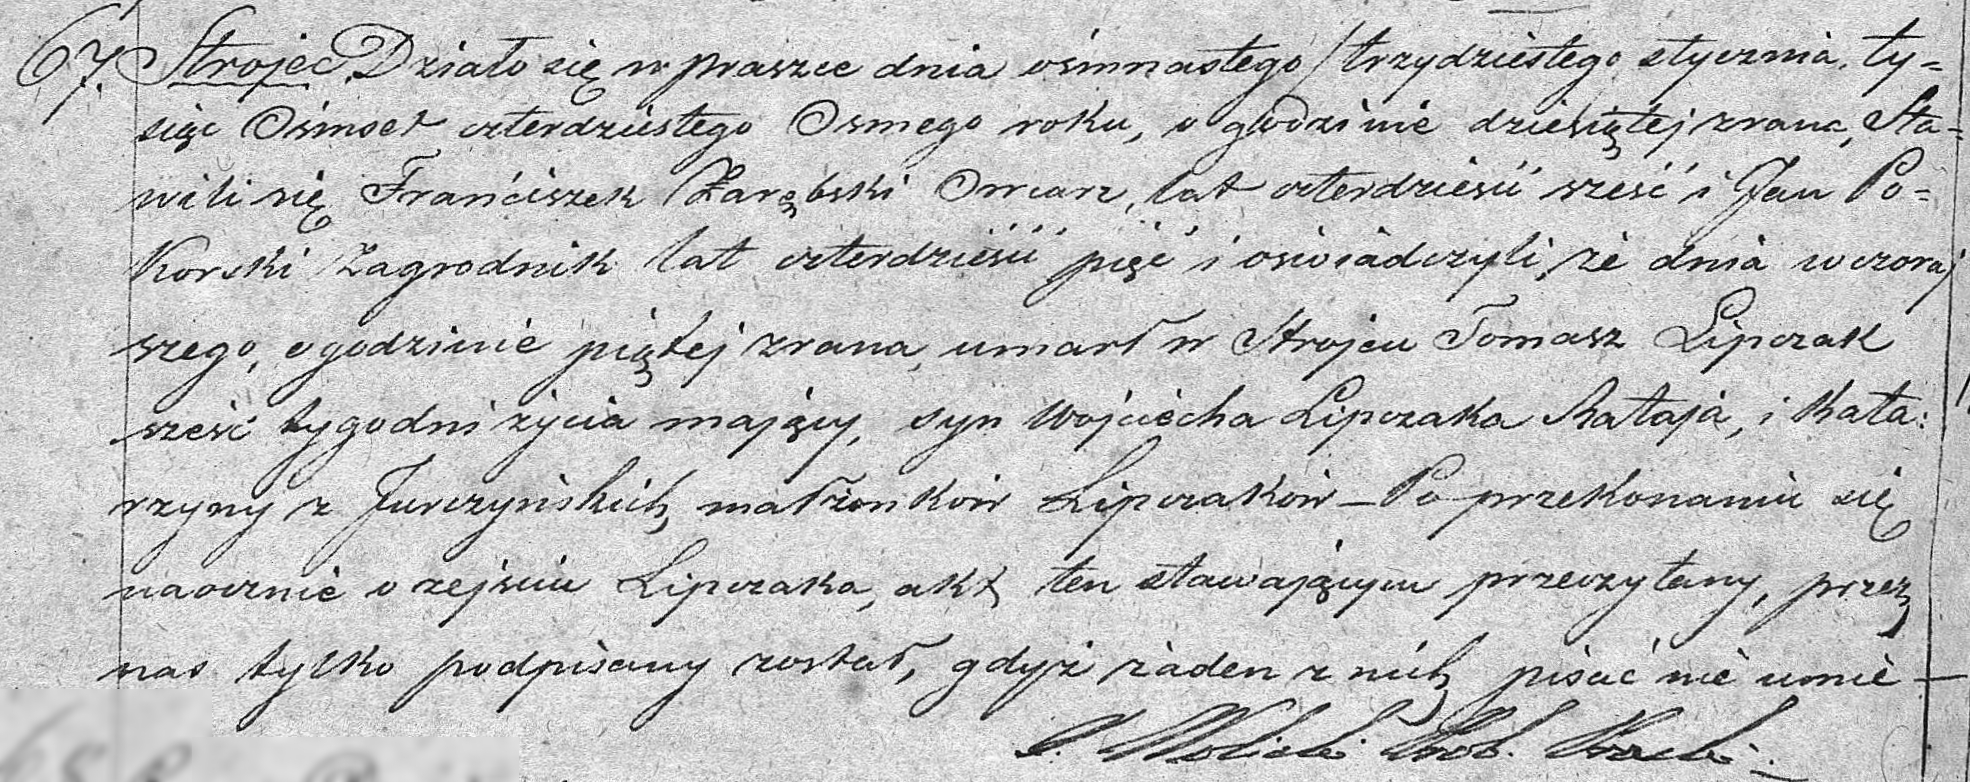 67. Strojec. Działo się w praszce dnia ośmnastego / trzydziestego stycznia, ty=
siąc Ośmset czterdziestego Osmego roku, o godzinie dziesiątej zrana, Sta=
wili się Franciszek Zarębski Owcarz, lat czterdzieści sześć i Jan Po=
korski Zagrodnik lat czterdzieści pięć i oświadczyli, że dnia wczoraj
szego, o godzinie piątej zrana, umarł w Strojcu Tomasz Lipczak
sześć tygodni życia mający, syn Wojciecha Lipczaka Rataja, i Kata:
rzyny z Jurczyńskich małżonków Lipczaków – Po przekonaniu się
naocznie o zejściu Lipczaka, akt ten stawającym przeczytany, przez
nas tylko podpisany został, gdyż żaden z nich pisać nie umie –